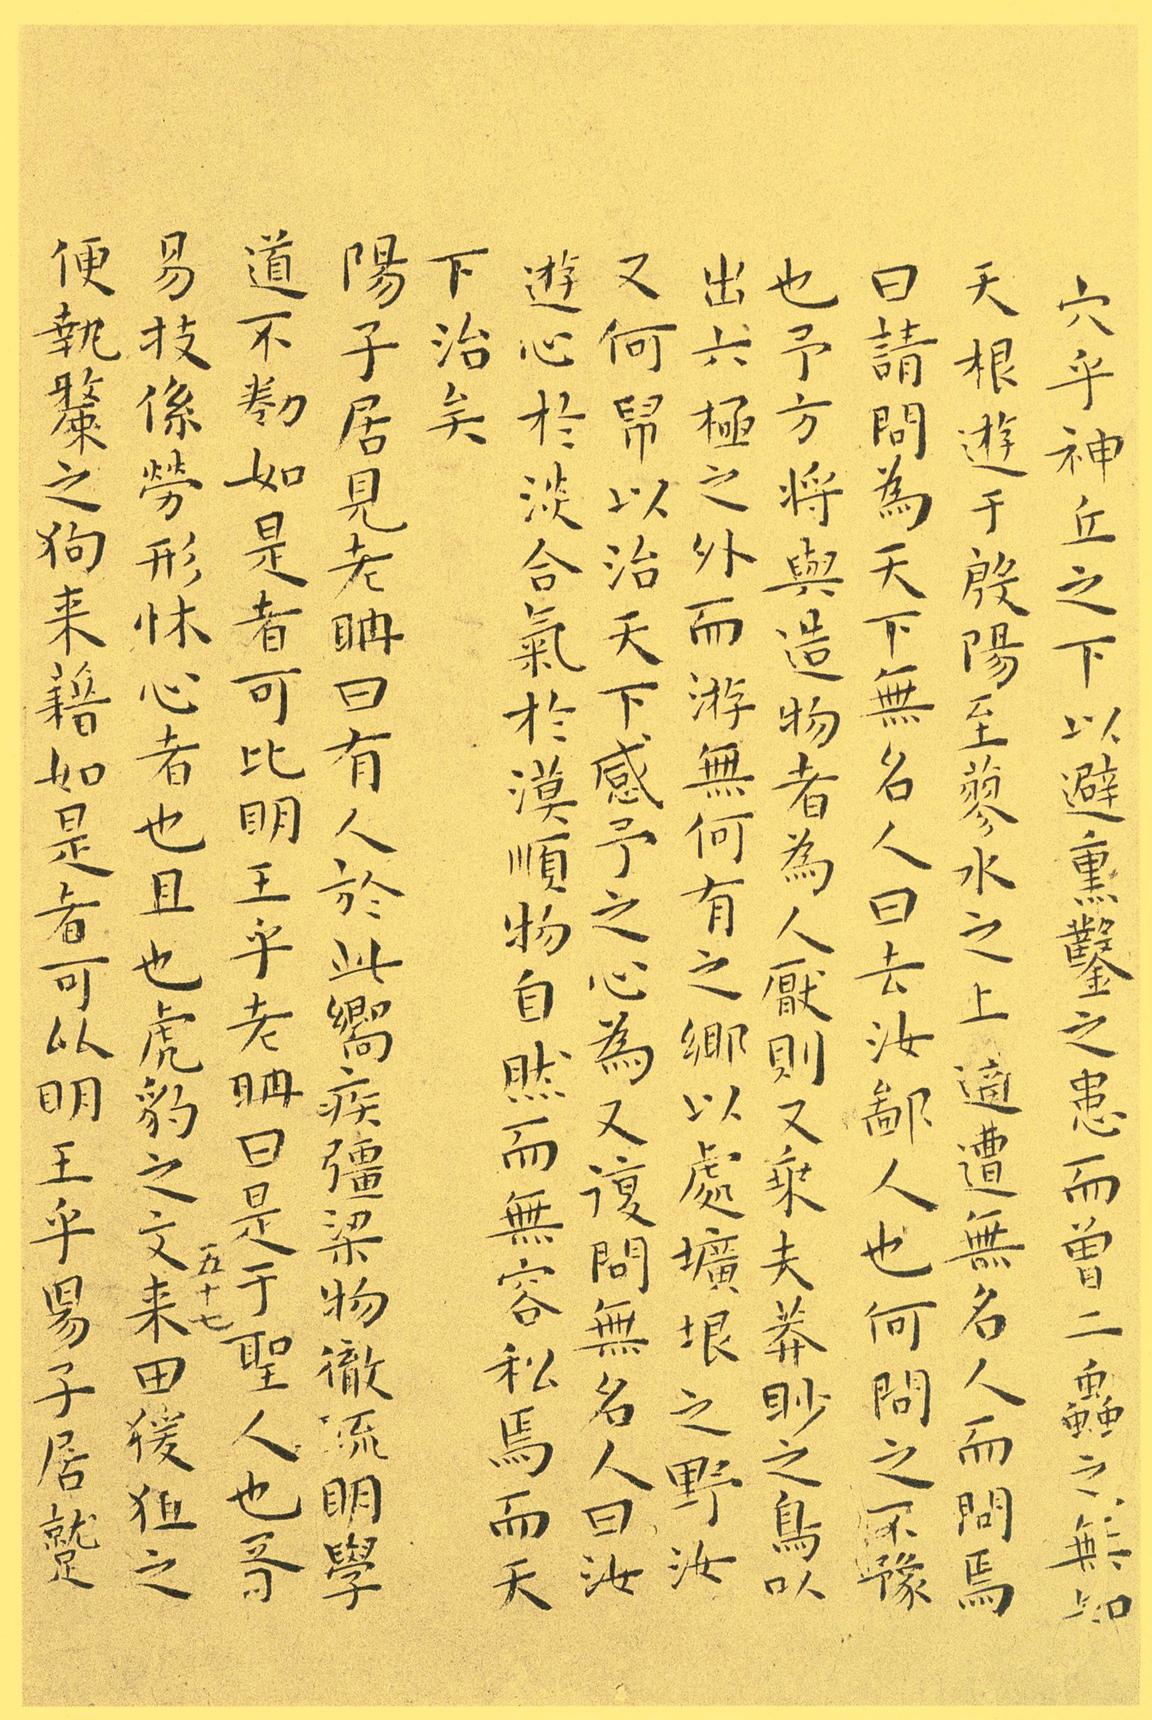 穴乎神丘之下以避熏鑿之患而曾二蟲之無知
天根遊于殷陽至蓼水之上適遭無名人而問焉
曰請問為天下無名人曰去汝鄙人也何問之不豫
也予方将與造物者為人厭則又乗夫莽眇之鳥以
出六極之外而游無何有之鄉以處壙垠之野汝
又何帠以治天下感予之心為又復問無名人曰汝
遊心於淡合氣於漠順物自然而無容私焉而天
下治矣
陽子居見老聃曰有人於此嚮疾彊梁物徹疏明學
道不勌如是者可比明王乎老聃曰是于聖人也胥
易技係勞形怵心者也且也虎豹之文来田猨狙之
五十七
便執斄之狗来藉如是者可以明王乎陽子居蹵